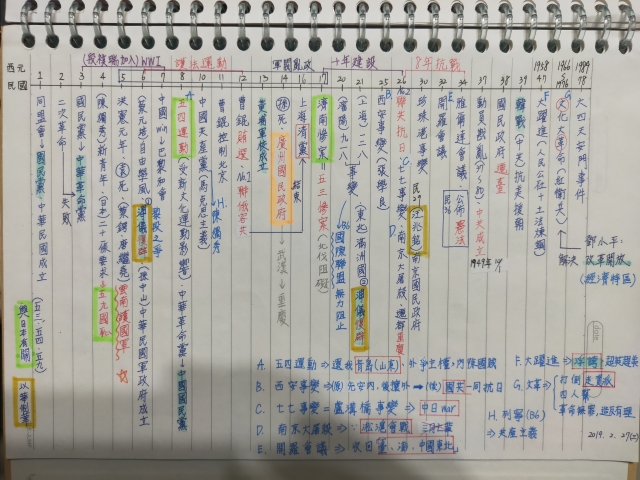 (段祺瑞加入)WWI 護法運動 軍閥亂政 十年建設 8年抗戰
西元 1958 1966 1976 1989
民國 1 2 3 4 5 6 7 8 10 11 12 13 14 16 17 20 21 25 26 30 32 34 37 38 39 47
同盟會→國民黨・中華民國成立
二次革命→失敗
國民黨→中華革命黨
(陳獨秀)新青年・(日本)二十一條要求→五九國恥
洪憲元年・(袁)死・(蔡鍔・唐繼堯)雲南護國軍
(蔡元培)自由學風・溥儀復辟・(孫中山)中華民國軍政府成立
中國win→巴黎和會
五四運動・(受新文化運動影響)・中華革命黨→中國國民黨
中國共產黨(馬克思主義)
曹錕控制北京 H.陳獨秀
曹錕賄選 聯俄容共
黃埔軍校成立
(孫)死 廣州國民政府→武漢→重慶
上海清黨 結束
濟南慘案→五三慘案(北伐阻礙)
(瀋陽)九一八事變 國際聯盟無力阻止
(上海)一二八事變 (東北)滿洲國 溥儀復辟
西安事變(張學良)
聯共抗日 C.七七事變 D.南京大屠殺・遷都重慶
珍珠港事變 民29(汪兆銘)南京國民政府
開羅會議
雅爾達會議 民36公佈憲法
動員戡亂
國民政府遷臺 中共成立 1949年10/1
韓戰(中共)抗美援朝
大躍進(人民公社+土法煉鋼)
文化大革命(紅衛兵)
六四天安門事件
鄧小平: 改革開放(經濟特區)
解決
與日本有關
以華制華
(五三・五四・五九)
A. 五四運動⇒還我青島(山東)・外爭主權,內除國賊
B. 西安事變⇒(原)先安內,後攘外→(後)國共一同抗日
C. 七七事變=盧溝橋事變⇒中日war
D. 南京大屠殺⇒淞滬會戰
E. 開羅會議⇒收回臺・澎・中國東北
F. 大躍進⇒超英趕美
G. 文革⇒打倒走資派
四人幫
革命無罪,造反有理
H. 列寧(B6)
⇒共產主義
2019.2.27(三)